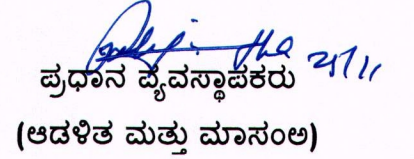 21/11
ಪ್ರಧಾನ ವ್ಯವಸ್ಥಾಪಕರು
(ಆಡಳಿತ ಮತ್ತು ಮಾಸಂಅ)